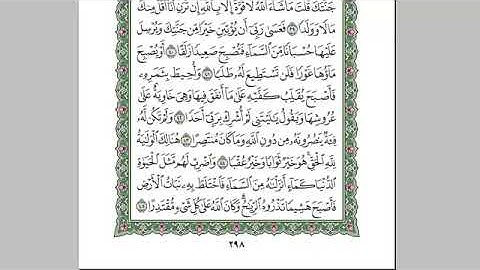 جَنَّتَكَ قُلْتَ مَا شَآءَ ٱللَّهُ لَا قُوَّةَ إِلَّا بِٱللَّهِ إِن تَرَنِ أَنَا۠ أَقَلَّ مِنكَ
مَالًا وَوَلَدًا ٣٩ فَعَسَىٰ رَبِّىٓ أَن يُؤْتِيَنِ خَيْرًا مِّن جَنَّتِكَ وَيُرْسِلَ
عَلَيْهَا حُسْبَانًا مِّنَ ٱلسَّمَآءِ فَتُصْبِحَ صَعِيدًا زَلَقًا ٤٠ أَوْ يُصْبِحَ
مَآؤُهَا غَوْرًا فَلَن تَسْتَطِيعَ لَهُۥ طَلَبًا ٤١ وَأُحِيطَ بِثَمَرِهِۦ
فَأَصْبَحَ يُقَلِّبُ كَفَّيْهِ عَلَىٰ مَآ أَنفَقَ فِيهَا وَهِىَ خَاوِيَةٌ عَلَىٰ
عُرُوشِهَا وَيَقُولُ يَٰلَيْتَنِى لَمْ أُشْرِكْ بِرَبِّىٓ أَحَدًا ٤٢ وَلَمْ تَكُن لَّهُۥ
فِئَةٌ يَنصُرُونَهُۥ مِن دُونِ ٱللَّهِ وَمَا كَانَ مُنتَصِرًا ٤٣ هُنَالِكَ ٱلْوَلَٰيَةُ
لِلَّهِ ٱلْحَقِّ هُوَ خَيْرٌ ثَوَابًا وَخَيْرٌ عُقْبًا ٤٤ وَٱضْرِبْ لَهُم مَّثَلَ ٱلْحَيَوٰةِ
ٱلدُّنْيَا كَمَآءٍ أَنزَلْنَٰهُ مِنَ ٱلسَّمَآءِ فَٱخْتَلَطَ بِهِۦ نَبَاتُ ٱلْأَرْضِ
فَأَصْبَحَ هَشِيمًا تَذْرُوهُ ٱلرِّيَٰحُ وَكَانَ ٱللَّهُ عَلَىٰ كُلِّ شَىْءٍ مُّقْتَدِرًا ٤٥
٢٩٨